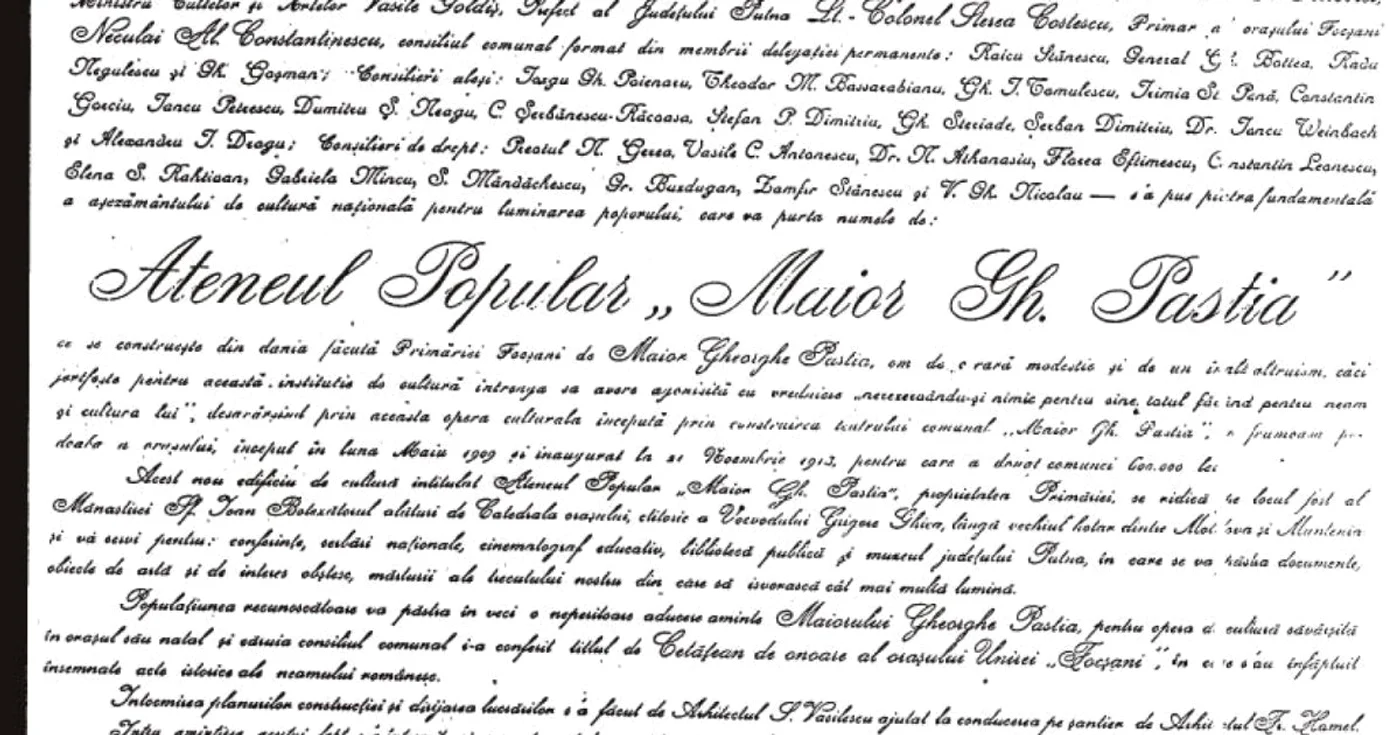 Ministru Cultelor și Artelor Vasile Goldiș, Prefect al Județului Putna Lt.-Colonel Sterea Costescu, Primar a orașului Focșani
Neculai Al. Constantinescu, consiliul comunal format din membrii delegației permanente: Raicu Stănescu, General Bottea, Radu
Negulescu și Gh. Goșman; Consilieri aleși: Iorgu Gh. Poienaru, Theodor M. Bassarabianu, Gh. I. Tomulescu, Irimia St. Pană, Constantin
Gorciu, Iancu Petrescu, Dumitru Ș. Neagu, C. Șerbănescu-Răcoasa, Ștefan P. Dimitriu, Gh. Steriade, Șerban Dimitriu, Dr. Iancu Weinbach
și Alexandru I. Dragu; Consilieri de drept: Preotul N. Gerea, Vasile C. Antonescu, Dr. N. Athanasiu, Florea Eftimescu, Constantin Leonescu,
Elena S. Rahtivan, Gabriela Mincu, S. Măndăchescu, Gr. Buzdugan, Zamfir Stănescu și V. Gh. Nicolau — s'a pus piatra fundamentală
a așezământului de cultură națională pentru luminarea poporului, care va purta numele de:
Ateneul Popular „Maior Gh. Pastia”
ce se construește din dania făcută Primăriei Focșani de Maior Gheorghe Pastia, om de o rară modestie și de un înalt altruism, căci
jertfește pentru această instituție de cultură întreaga sa avere agonisită cu vrednicie „nerezervându-și nimic pentru sine, totul făcând pentru neam
și cultura lui”, desăvârșind prin aceasta opera culturala începută prin construirea teatrului comunal „Maior Gh. Pastia”, o frumoasă po-
doaba a orașului, început în luna Maiu 1909 și inaugurat la 21 Noembrie 1913, pentru care a donat comunei 600.000 lei
Acest nou edificiu de cultură intitulat Ateneul Popular „Maior Gh. Pastia”, proprietatea Primăriei, se ridică pe locul fost al
Mănăstirei Sf. Ioan Botezătorul alături de Catedrala orașului, ctitorie a Voevodului Grigore Ghica, lângă vechiul hotar dintre Moldova și Muntenia
și va servi pentru: conferințe, serbări naționale, cinematograf educativ, bibliotecă publică și muzeul județului Putna, în care se va păstra documente,
obiecte de artă și de interes obștesc, mărturii ale trecutului nostru din care să isvorască cât mai multă lumină.
Populațiunea recunoscătoare va păstra în veci o nepieritoare aducere aminte Maiorului Gheorghe Pastia, pentru opera de cultură săvârșită
în orașul său natal și căruia consiliul comunal i-a conferit titlul de Cetățean de onoare al orașului Unirei „Focșani”, în care s'au înfăptuit
însemnate acte istorice ale neamului românesc.
Întocmirea planurilor construcției și dirijarea lucrărilor s'a făcut de Arhitectul S. Vasilescu ajutat la conducerea pe șantier de Arhitectul Fr. Hamel.